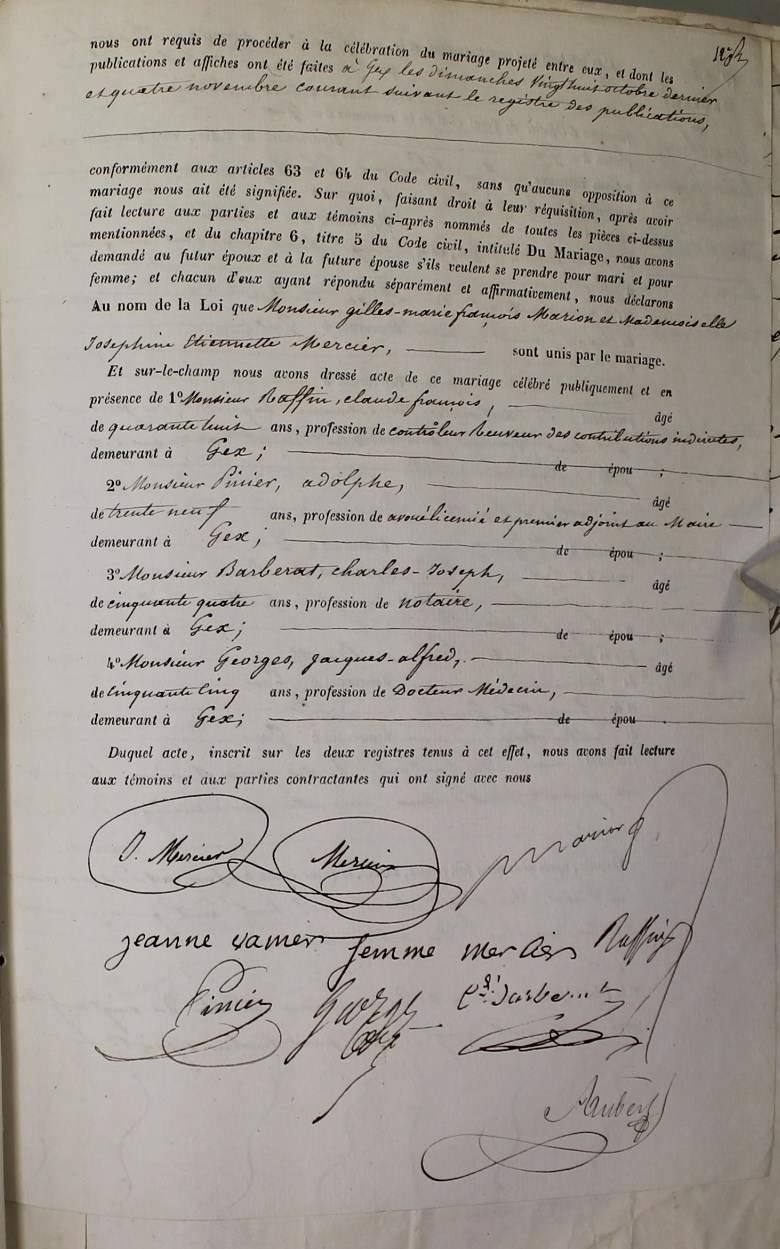 nous ont requis de procéder à la célébration du mariage projeté entre eux, et dont les
publications et affiches ont été faites à Gex les dimanches vingt huit octobre dernier
et quatre novembre courant suivant le registre des publications,
conformément aux articles 63 et 64 du Code civil, sans qu'aucune opposition à ce
mariage nous ait été signifiée. Sur quoi, faisant droit à leur réquisition, après avoir
fait lecture aux parties et aux témoins ci-après nommés de toutes les pièces ci-dessus
mentionnées, et du chapitre 6, titre 5 du Code civil, intitulé Du Mariage, nous avons
demandé au futur époux et à la future épouse s'ils veulent se prendre pour mari et pour
femme; et chacun d'eux ayant répondu séparément et affirmativement, nous déclarons
Au nom de la Loi que Monsieur gilles-marie françois Marion et Mademoiselle
Josephine Etiennette Mercier, sont unis par le mariage.
Et sur-le-champ nous avons dressé acte de ce mariage célébré publiquement et en
présence de 1º Monsieur Raffin, claude françois, âgé
de quarante huit ans, profession de contrôleur Receveur des contributions indirectes,
demeurant à Gex; de épou ;
2º Monsieur Pinier, adolphe, âgé
de trente neuf ans, profession de avoué licencié et premier adjoint au Maire
demeurant à Gex; de épou ;
3º Monsieur Barberat, charles-Joseph, âgé
de cinquante quatre ans, profession de notaire,
demeurant à Gex; de épou ;
4º Monsieur Georges, jacques-alfred, âgé
de cinquante cinq ans, profession de Docteur Médecin,
demeurant à Gex; de épou
Duquel acte, inscrit sur les deux registres tenus à cet effet, nous avons fait lecture
aux témoins et aux parties contractantes qui ont signé avec nous
J. Mercier Mercier Marion
jeanne femme mercier Raffin
Pinier Georges